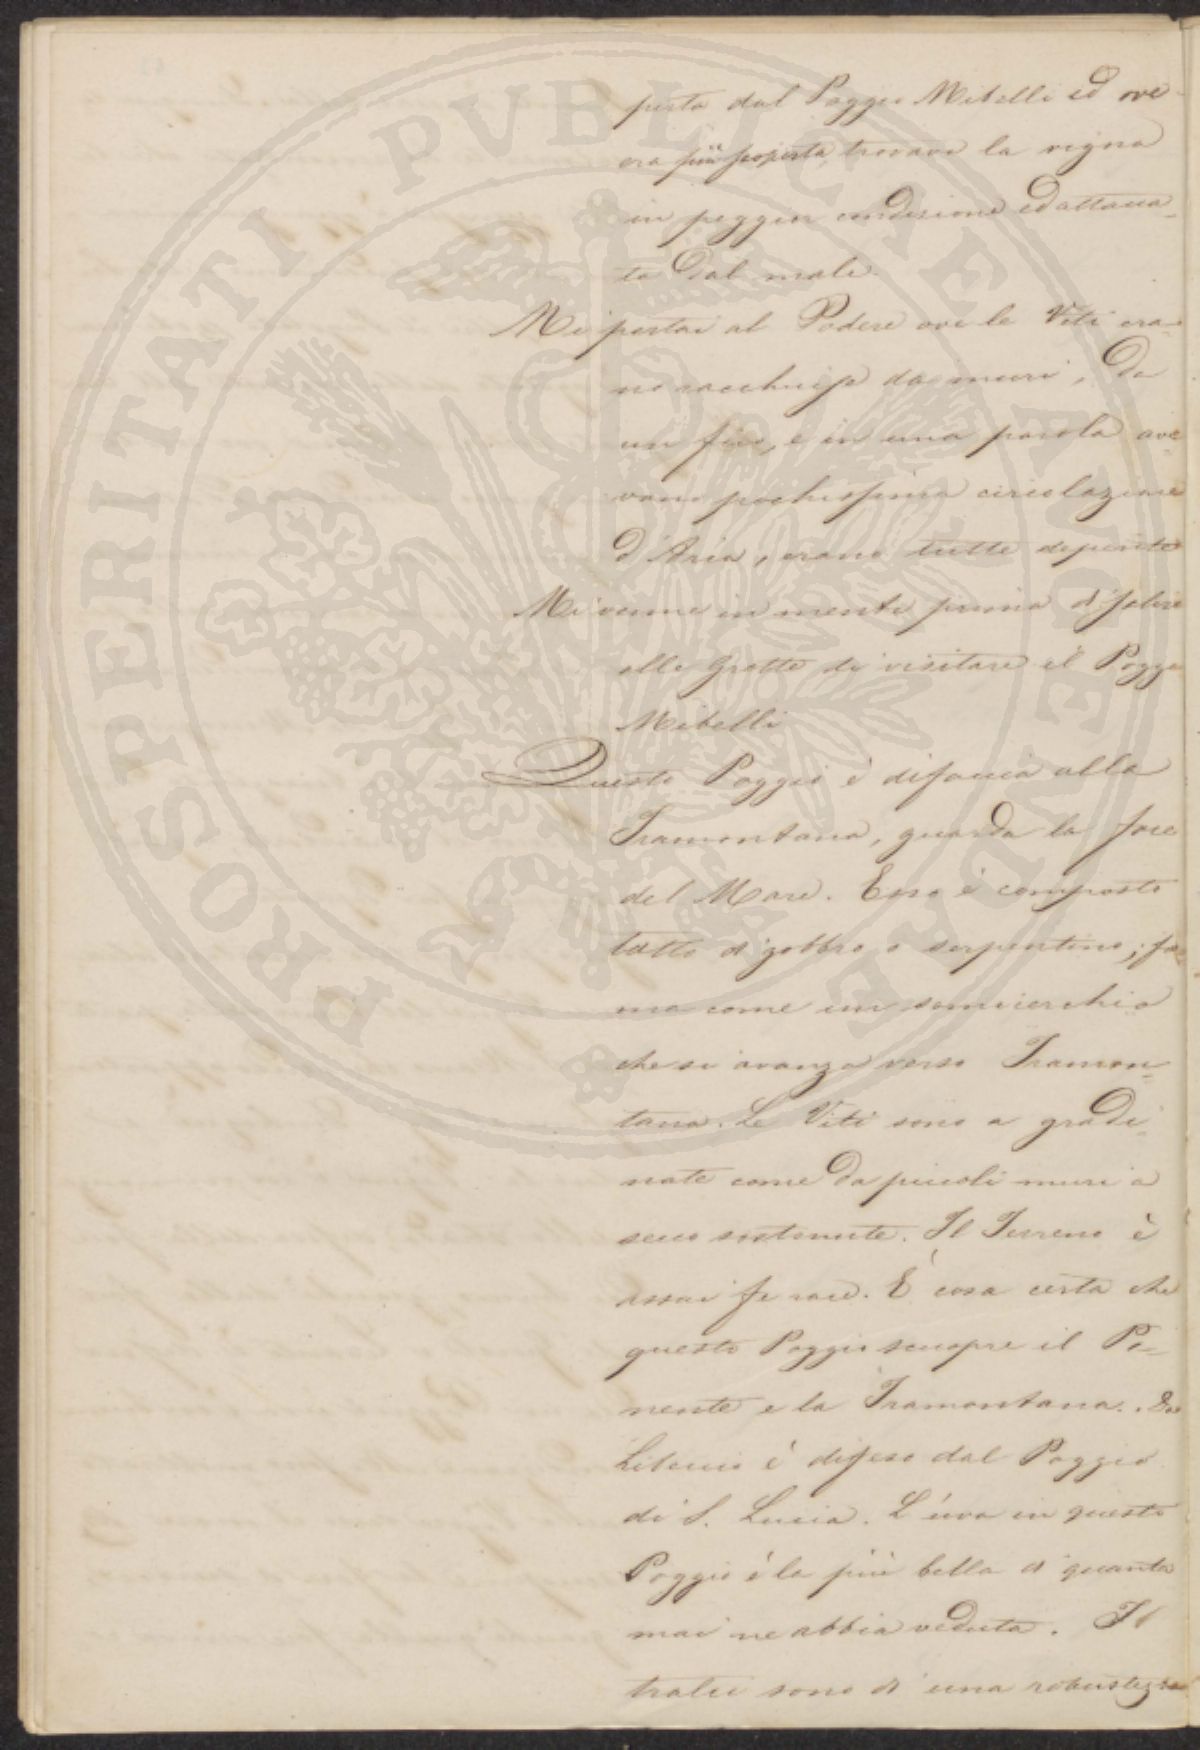 PROSPERITATI PVBLICAE AVGENDAE
posta dal Poggio Mibelli ed ove
era più esposta, trovavo la vigna
in peggior condizione ed attacca-
ta dal male.
Mi portai al Podere ove le Viti era-
no racchiuse da muri, da
un fico, e in una parola ave
vano pochissima circolazione
d'Aria, erano tutte deperite
Mi venne in mente prima di salire
alle Grotte di visitare il Poggio
Mibelli
Questo Poggio è di faccia alla
Tramontana, guarda la foce
del Mare. Esso è composto
tutto di gabbro o serpentino, for
ma come un semicerchio
che si avanza verso Tramon-
tana. Le Viti sono a gradi-
nate come da piccoli muri a
secco sostenute. Il Terreno è
assai ferace. È cosa certa che
questo Poggio scuopre il Po-
nente e la Tramontana. Dal
Libeccio è difeso dal Poggio
di S. Lucia. L'uva in questo
Poggio è la più bella di quanta
mai ne abbia veduta. Il
tralci sono di una robustezza